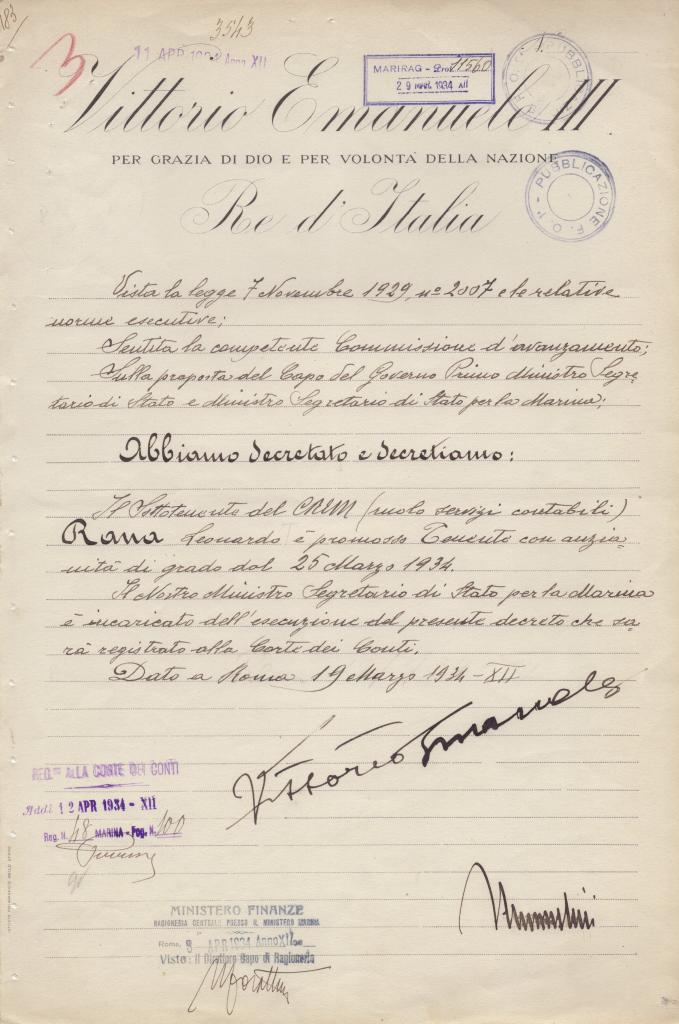 183
3543
3
11 APR 1934 Anno XII
MARIRAG - Prot. 11560
29 MAR. 1934 XII
PUBBLICAZIONE F. O. 1ª
Vittorio Emanuele III
PER GRAZIA DI DIO E PER VOLONTÀ DELLA NAZIONE
PUBBLICAZIONE F. O. 1ª
Re d'Italia
Vista la legge 7 Novembre 1929, nº 2007 e le relative
norme esecutive;
Sentita la competente Commissione d'avanzamento;
Sulla proposta del Capo del Governo Primo Ministro Segre-
tario di Stato e Ministro Segretario di Stato per la Marina;
Abbiamo decretato e decretiamo:
Il Sottotenente del CREM (ruolo servizi contabili)
Rana Leonardo è promosso Tenente con anzia-
nità di grado dal 25 Marzo 1934.
Il Nostro Ministro Segretario di Stato per la Marina
è incaricato dell'esecuzione del presente decreto che sa-
rà registrato alla Corte dei Conti.
Dato a Roma 19 Marzo 1934-XII
Vittorio Emanuele
REG.TO ALLA CORTE DEI CONTI
Addì 12 APR 1934 - XII
Reg. N. 48 MARINA - Fog. N. 100
Mussolini
MINISTERO FINANZE
RAGIONERIA CENTRALE PRESSO IL MINISTERO MARINA
Roma, 9 APR 1934 Anno XII
Visto: Il Direttore Capo di Ragioneria